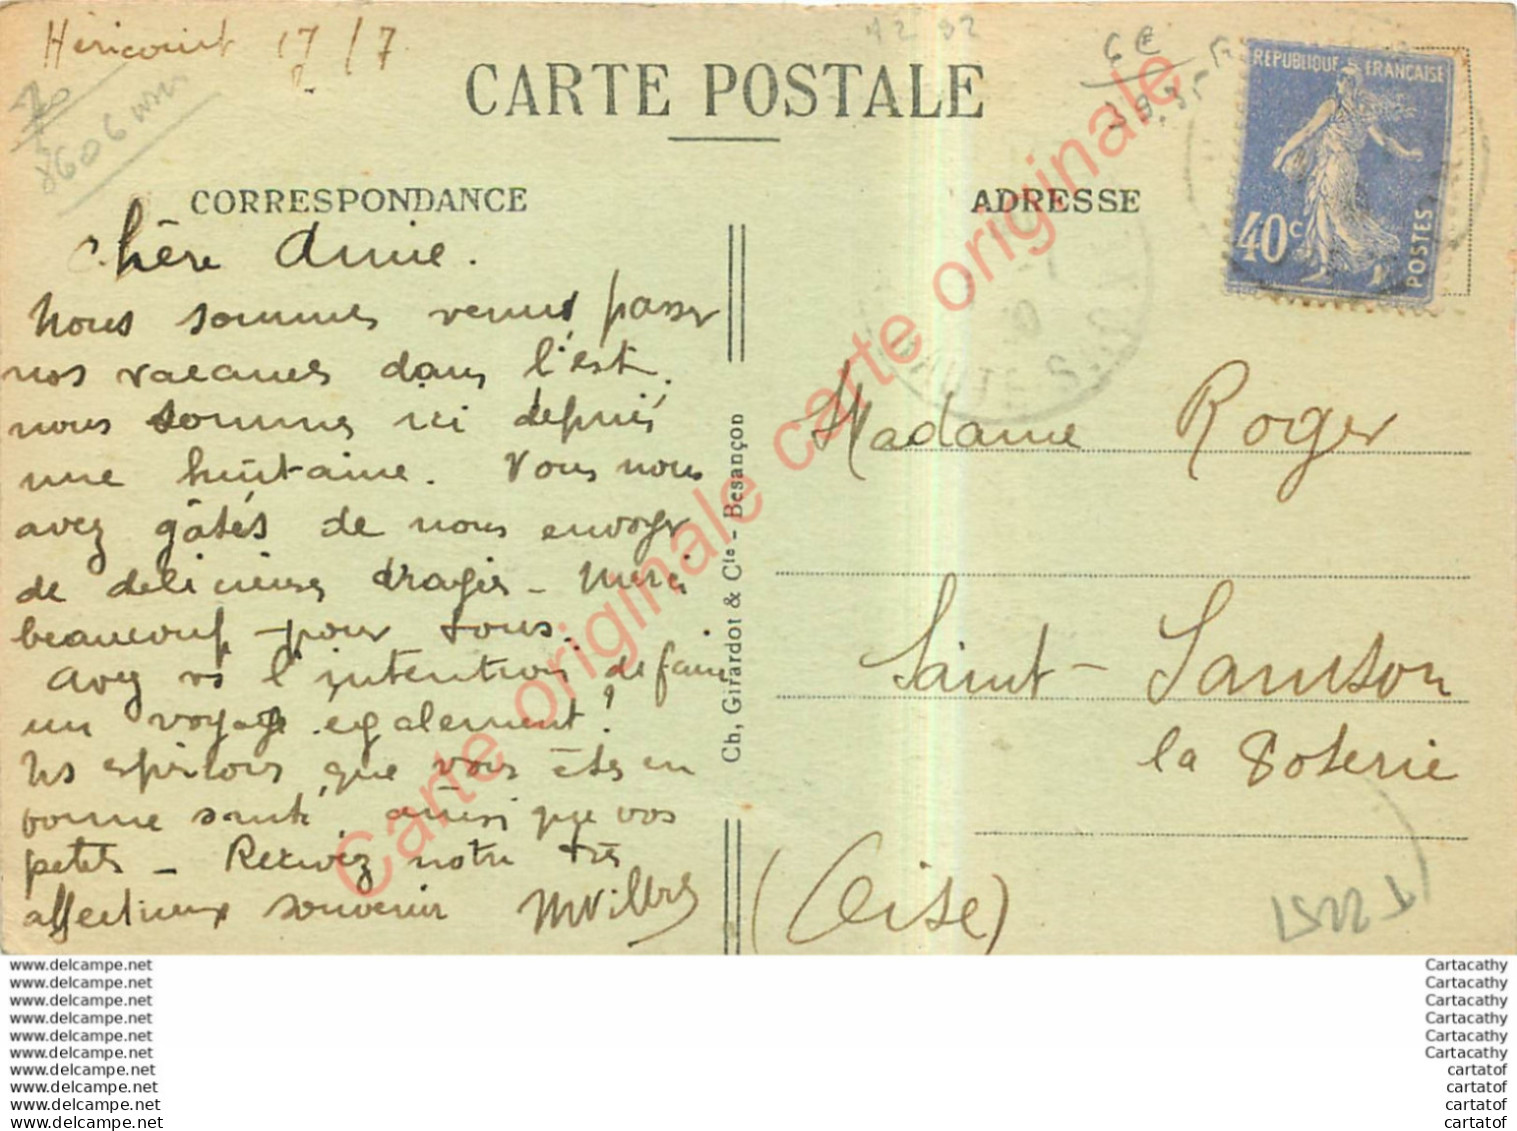 Héricourt 17/7
CARTE POSTALE
CORRESPONDANCE
ADRESSE
RÉPUBLIQUE FRANÇAISE
40c
POSTES
Chère Amie.
Nous sommes venus passer
nos vacances dans l'est.
nous sommes ici depuis
une huitaine. Vous nous
avez gâtés de nous envoyer
de delicieuses dragées - Merci
beaucoup pour tous.
Avez vs l'intention de faire
un voyage également?
Ns espérons que vous êtes en
bonne santé, ainsi que vos
petits - Recevez notre très
affectueux souvenir MVillers
Ch. Girardot & Cie - Besançon
Madame Roger
Saint-Samson
la Poterie
(Oise)
8606
Carte originale carte originale
www.delcampe.net
www.delcampe.net
www.delcampe.net
www.delcampe.net
www.delcampe.net
www.delcampe.net
www.delcampe.net
www.delcampe.net
www.delcampe.net
www.delcampe.net
Cartacathy
Cartacathy
Cartacathy
Cartacathy
Cartacathy
Cartacathy
cartatof
cartatof
cartatof
cartatof